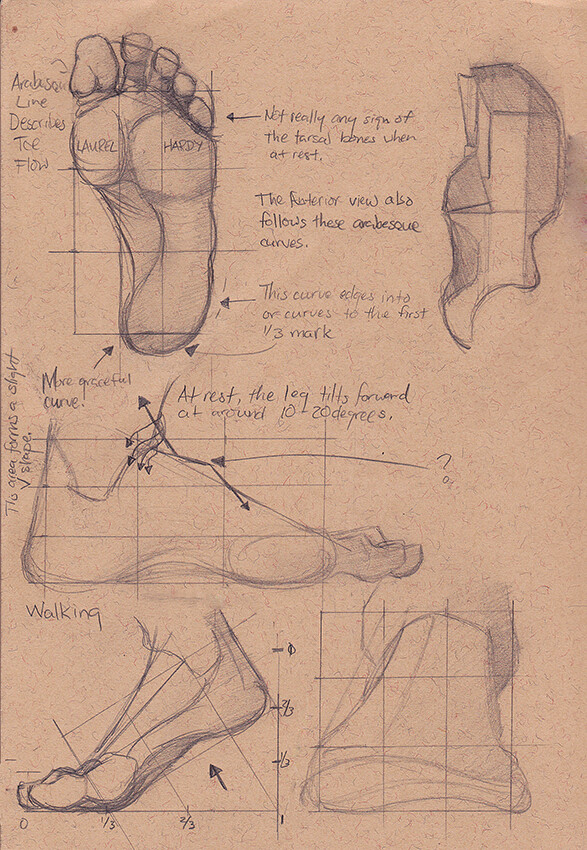 Arabesque
Line
Describes
Toe
Flow
LAUREL
HARDY
Not really any sign of
the tarsal bones when
at rest.
The Posterior view also
follows these arabesque
curves.
This curve edges into
or curves to the first
1/3 mark
More graceful
curve.
This area forms a slight
V shape.
At rest, the leg tilts forward
at around 10-20degrees.
?
Walking
0
2/3
1/3
1
0
1/3
2/3